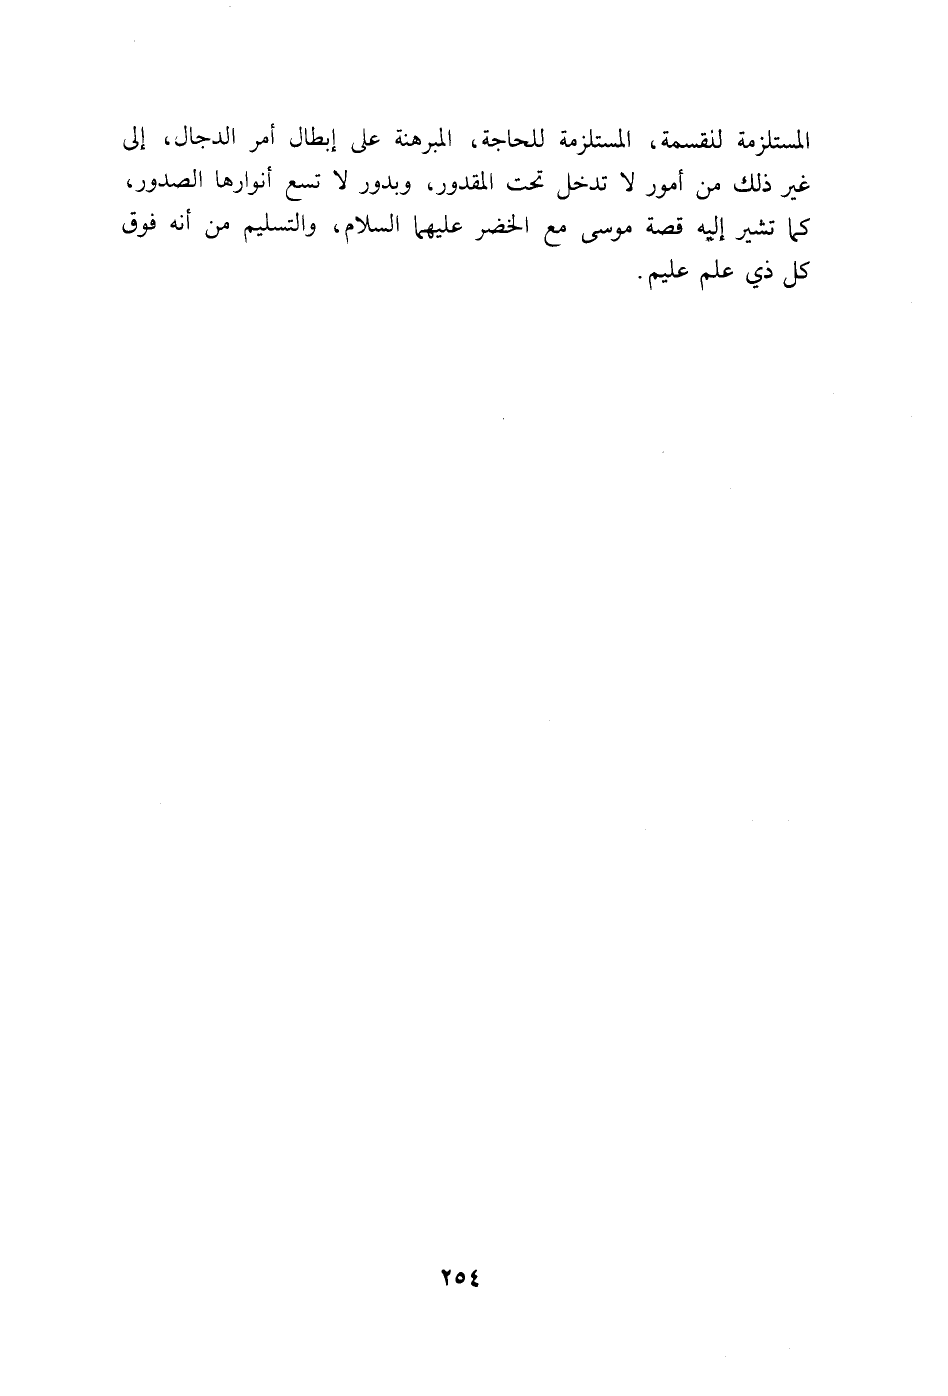 المستلزمة للقسمة، المستلزمة للحاجة، المبرهنة على إبطال أمر الدجال، إلى
غير ذلك من أمور لا تدخل تحت المقدور، وبدور لا تسع أنوارها الصدور،
كما تشير إليه قصة موسى مع الخضر عليهما السلام، والتسليم من أنه فوق
كل ذي علم عليم.
٢٥٤